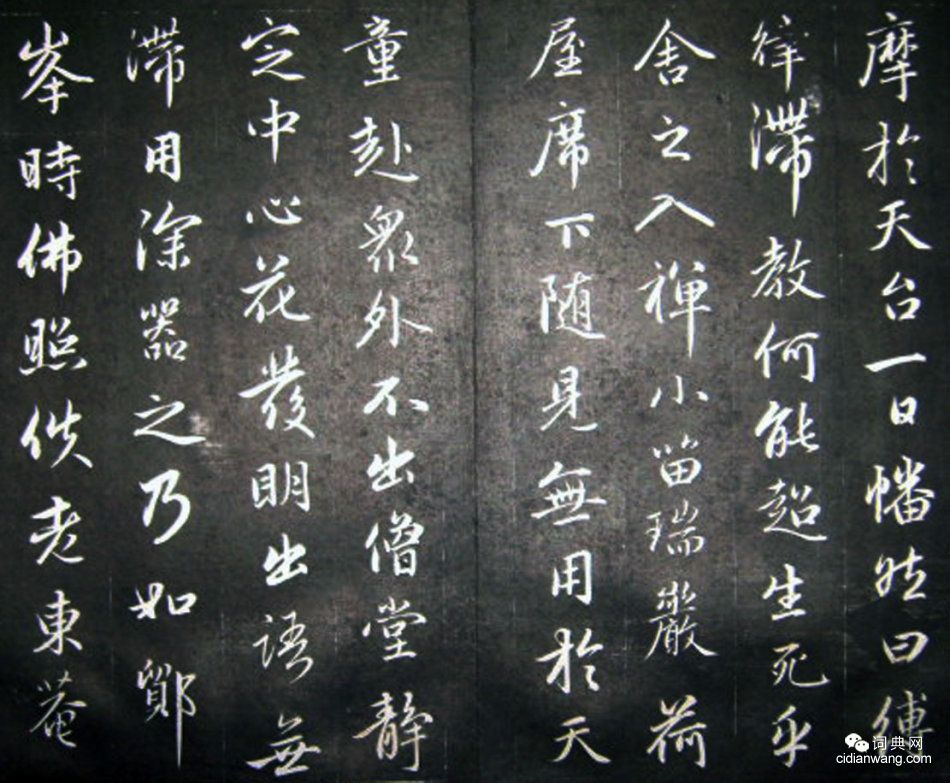 摩於天台一日幡然曰傅
律滯教何能超生死乎
舍之入禅小留瑞巖荷
屋席下随見無用於天
童赴衆外不出僧堂静
定中心花發明出語無
滯用深器之乃如鄮
峯時佛照佚老東菴
词典网
cidianwang.com